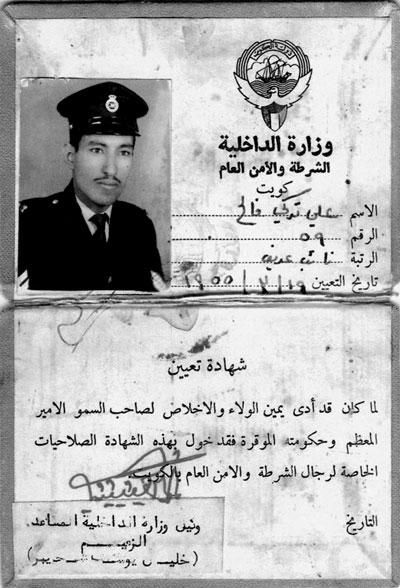 دولة الكويت
وزارة الداخلية
الشرطة والأمن العام
كويت
الاسم علي تركي فالح
الرقم ٥٩
الرتبة نائب عريف
تاريخ التعيين ١٩٥٥/٧/١٩
شهادة تعيين
لما كان قد أدى يمين الولاء والاخلاص لصاحب السمو الامير
المعظم وحكومته الموقرة فقد خول بهذه الشهادة الصلاحيات
الخاصة لرجال الشرطة والامن العام بالكويت.
التاريخ
وزارة الداخلية المساعد
الزعيم